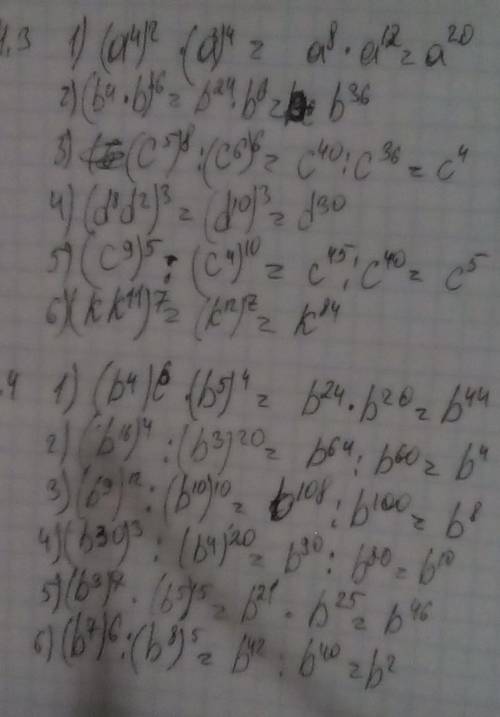 4.3 1) (a⁴)² · (a³)⁴ = a⁸ · a¹² = a²⁰
2) (b⁴ · b)⁶ = b²⁴ · b⁶ = b³⁶
3) (c⁵)⁸ : (c⁶)⁶ = c⁴⁰ : c³⁶ = c⁴
4) (d⁸d²)³ = (d¹⁰)³ = d³⁰
5) (c⁹)⁵ : (c⁴)¹⁰ = c⁴⁵ : c⁴⁰ = c⁵
6) (kk¹¹)⁷ = (k¹²)⁷ = k⁸⁴
.4 1) (b⁴)⁶ · (b⁵)⁴ = b²⁴ · b²⁰ = b⁴⁴
2) (b¹⁶)⁴ : (b³)²⁰ = b⁶⁴ : b⁶⁰ = b⁴
3) (b⁹)¹² : (b¹⁰)¹⁰ = b¹⁰⁸ : b¹⁰⁰ = b⁸
4) (b³⁰)³ : (b⁴)²⁰ = b⁹⁰ : = b¹⁰
5) (b³)⁷ · (b⁵)⁵ = b²¹ · b²⁵ = b⁴⁶
6) (b⁷)⁶ : (b⁸)⁵ = b⁴² : b⁴⁰ = b²